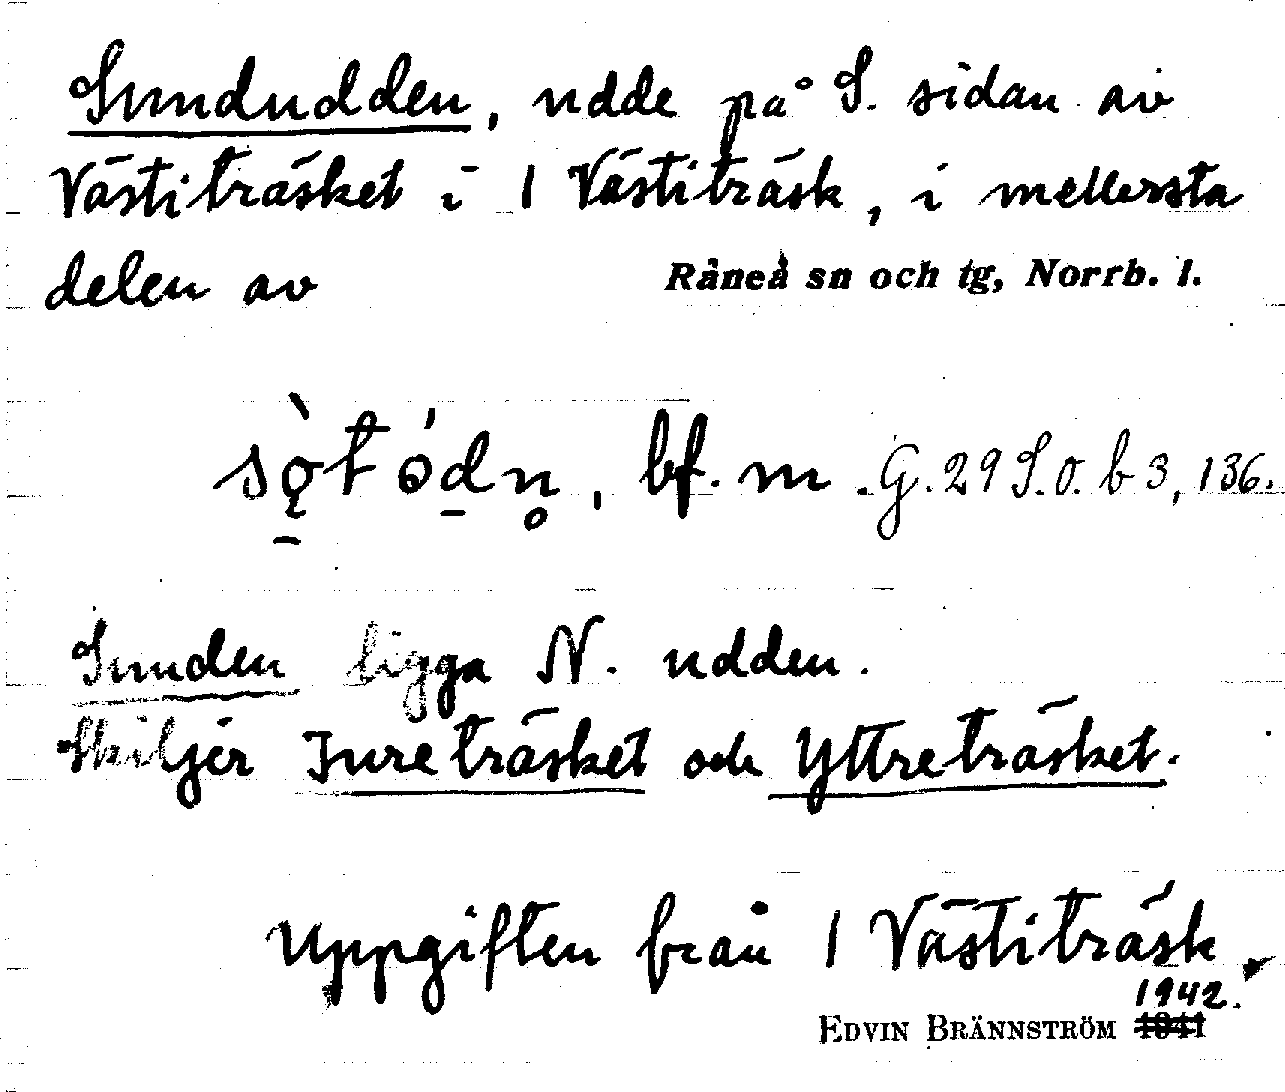 Sundudden, udde på S. sidan av
Västiträsket i 1 Västiträsk, i mellersta
delen av Råneå sn och tg, Norrb. l.
sǫ̀t ódn̥, bf. m. G. 29 S.O. b 3, 136.
Sunden ligga N. udden.
Skiljer Inreträsket och Yttreträsket.
Uppgiften från 1 Västiträsk.
1942.
EDVIN BRÄNNSTRÖM 1941